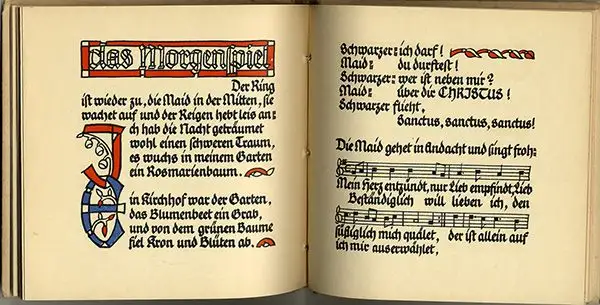 das Morgenspiel
Der Ring
ist wieder zu, die Maid in der Mitten, sie
wachet auf und der Reigen hebt leis an:
Ich hab die Nacht geträumet
wohl einen schweren Traum,
es wuchs in meinem Garten
ein Rosmarienbaum.
Ein Kirchhof war der Garten,
das Blumenbeet ein Grab,
und von dem grünen Baume
fiel Kron und Blüten ab.
Schwarzer: ich darf!
Maid: du durftest!
Schwarzer: wer ist neben mir?
Maid: über die CHRISTUS!
Schwarzer flieht.
Sanctus, sanctus, sanctus!
Die Maid gehet in Andacht und singt froh:
Mein Herz entzündt, nur Lieb empfindt, Lieb
Beständiglich will lieben ich, den
süßiglich mich quälet, der ist allein auf
ich mir auserwählet,